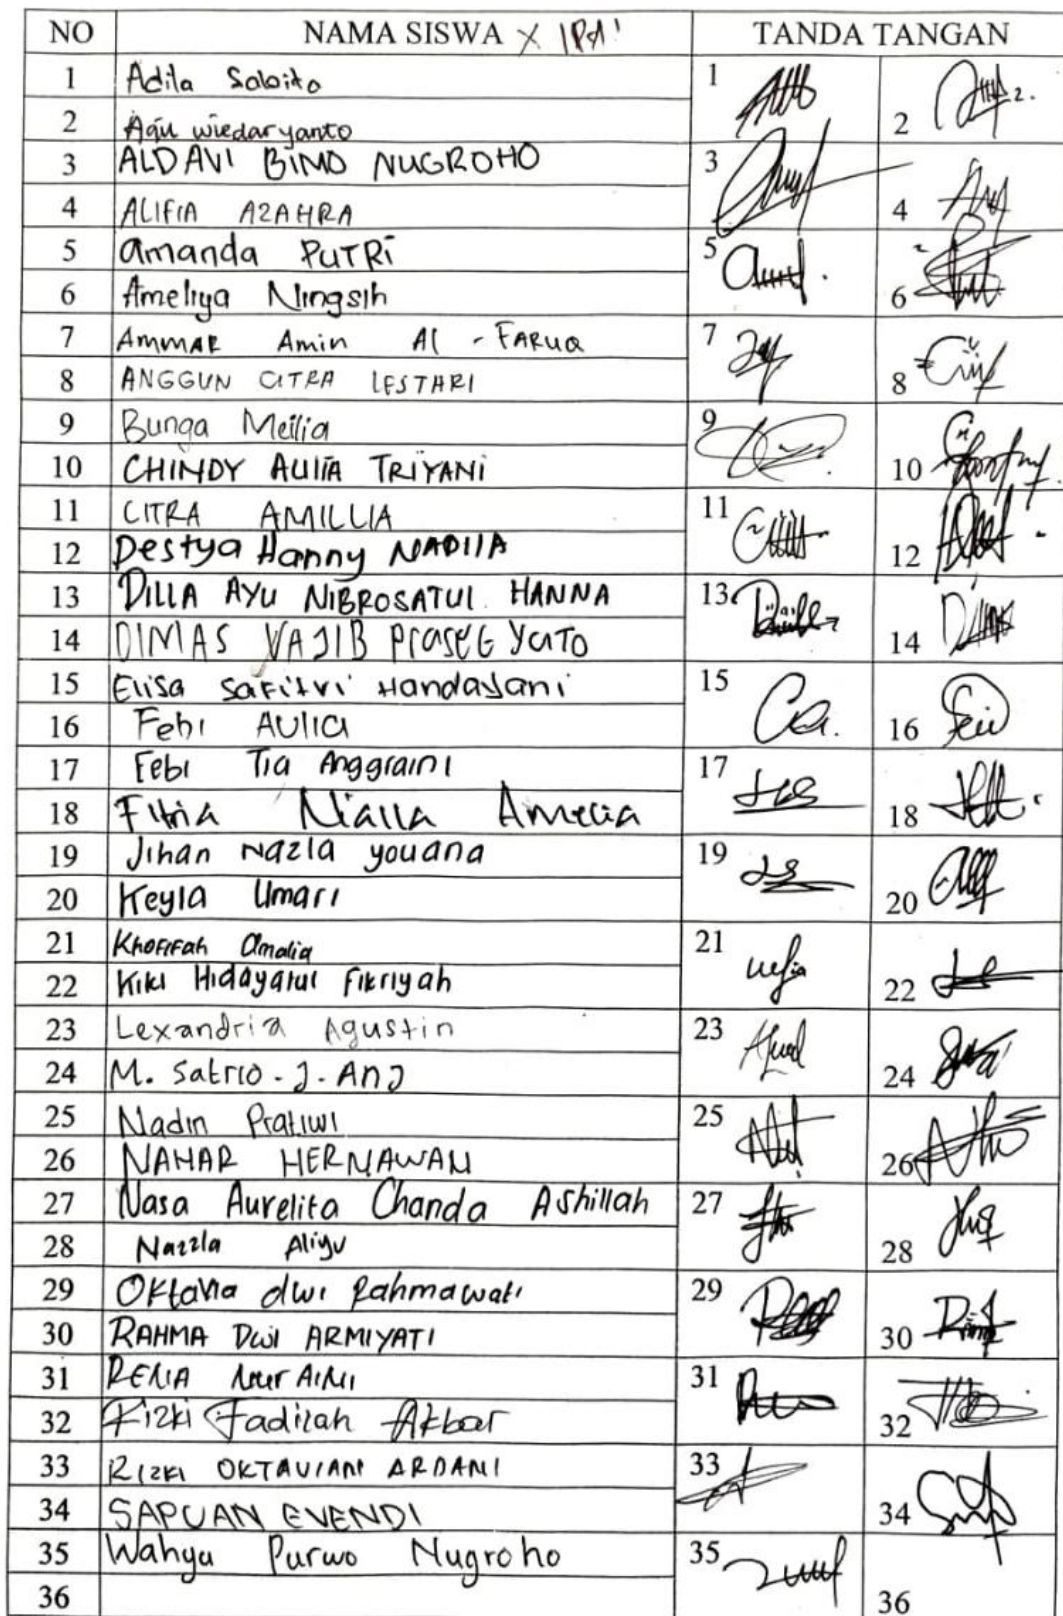 NO NAMA SISWA X IPA1 TANDA TANGAN
1 Adila Sabita 1
2 Agil wiedaryanto 2
3 ALDAVI BIMO NUGROHO 3
4 ALIFIA AZAHRA 4
5 amanda PUTRI 5
6 Ameliya Ningsih 6
7 Ammar Amin Al - FARUQ 7
8 ANGGUN CITRA LESTARI 8
9 Bunga Meilia 9
10 CHINDY AULIA TRIYANI 10
11 CITRA AMILLIA 11
12 Destya Hanny NADILA 12
13 DILLA AYU NIBROSATUL HANNA 13
14 DIMAS VAJIB 14
15 Elisa Safitri Handayani 15
16 Febi AULIA 16
17 Febi Tia Anggraini 17
18 Fitria Nialla Amelia 18
19 Jihan Nazla youana 19
20 Keyla Umari 20
21 Khofifah amalia 21
22 Kiki Hidayatul Fikriyah 22
23 Lexandria Agustin 23
24 M. Satrio . J . ANJ 24
25 Nadin Pratiwi 25
26 NAHAR HERNAWAN 26
27 Nasa Aurelita Chanda Ashillah 27
28 Nazzla Aliyu 28
29 Oktavia dwi Rahmawati 29
30 RAHMA DWI ARMIYATI 30
31 RENIA Nur AINI 31
32 Rizki Fadilah Akbar 32
33 Rizki OKTAVIANI ARDANI 33
34 SAPUAN EVENDI 34
35 Wahyu Purwo Nugroho 35
36 36